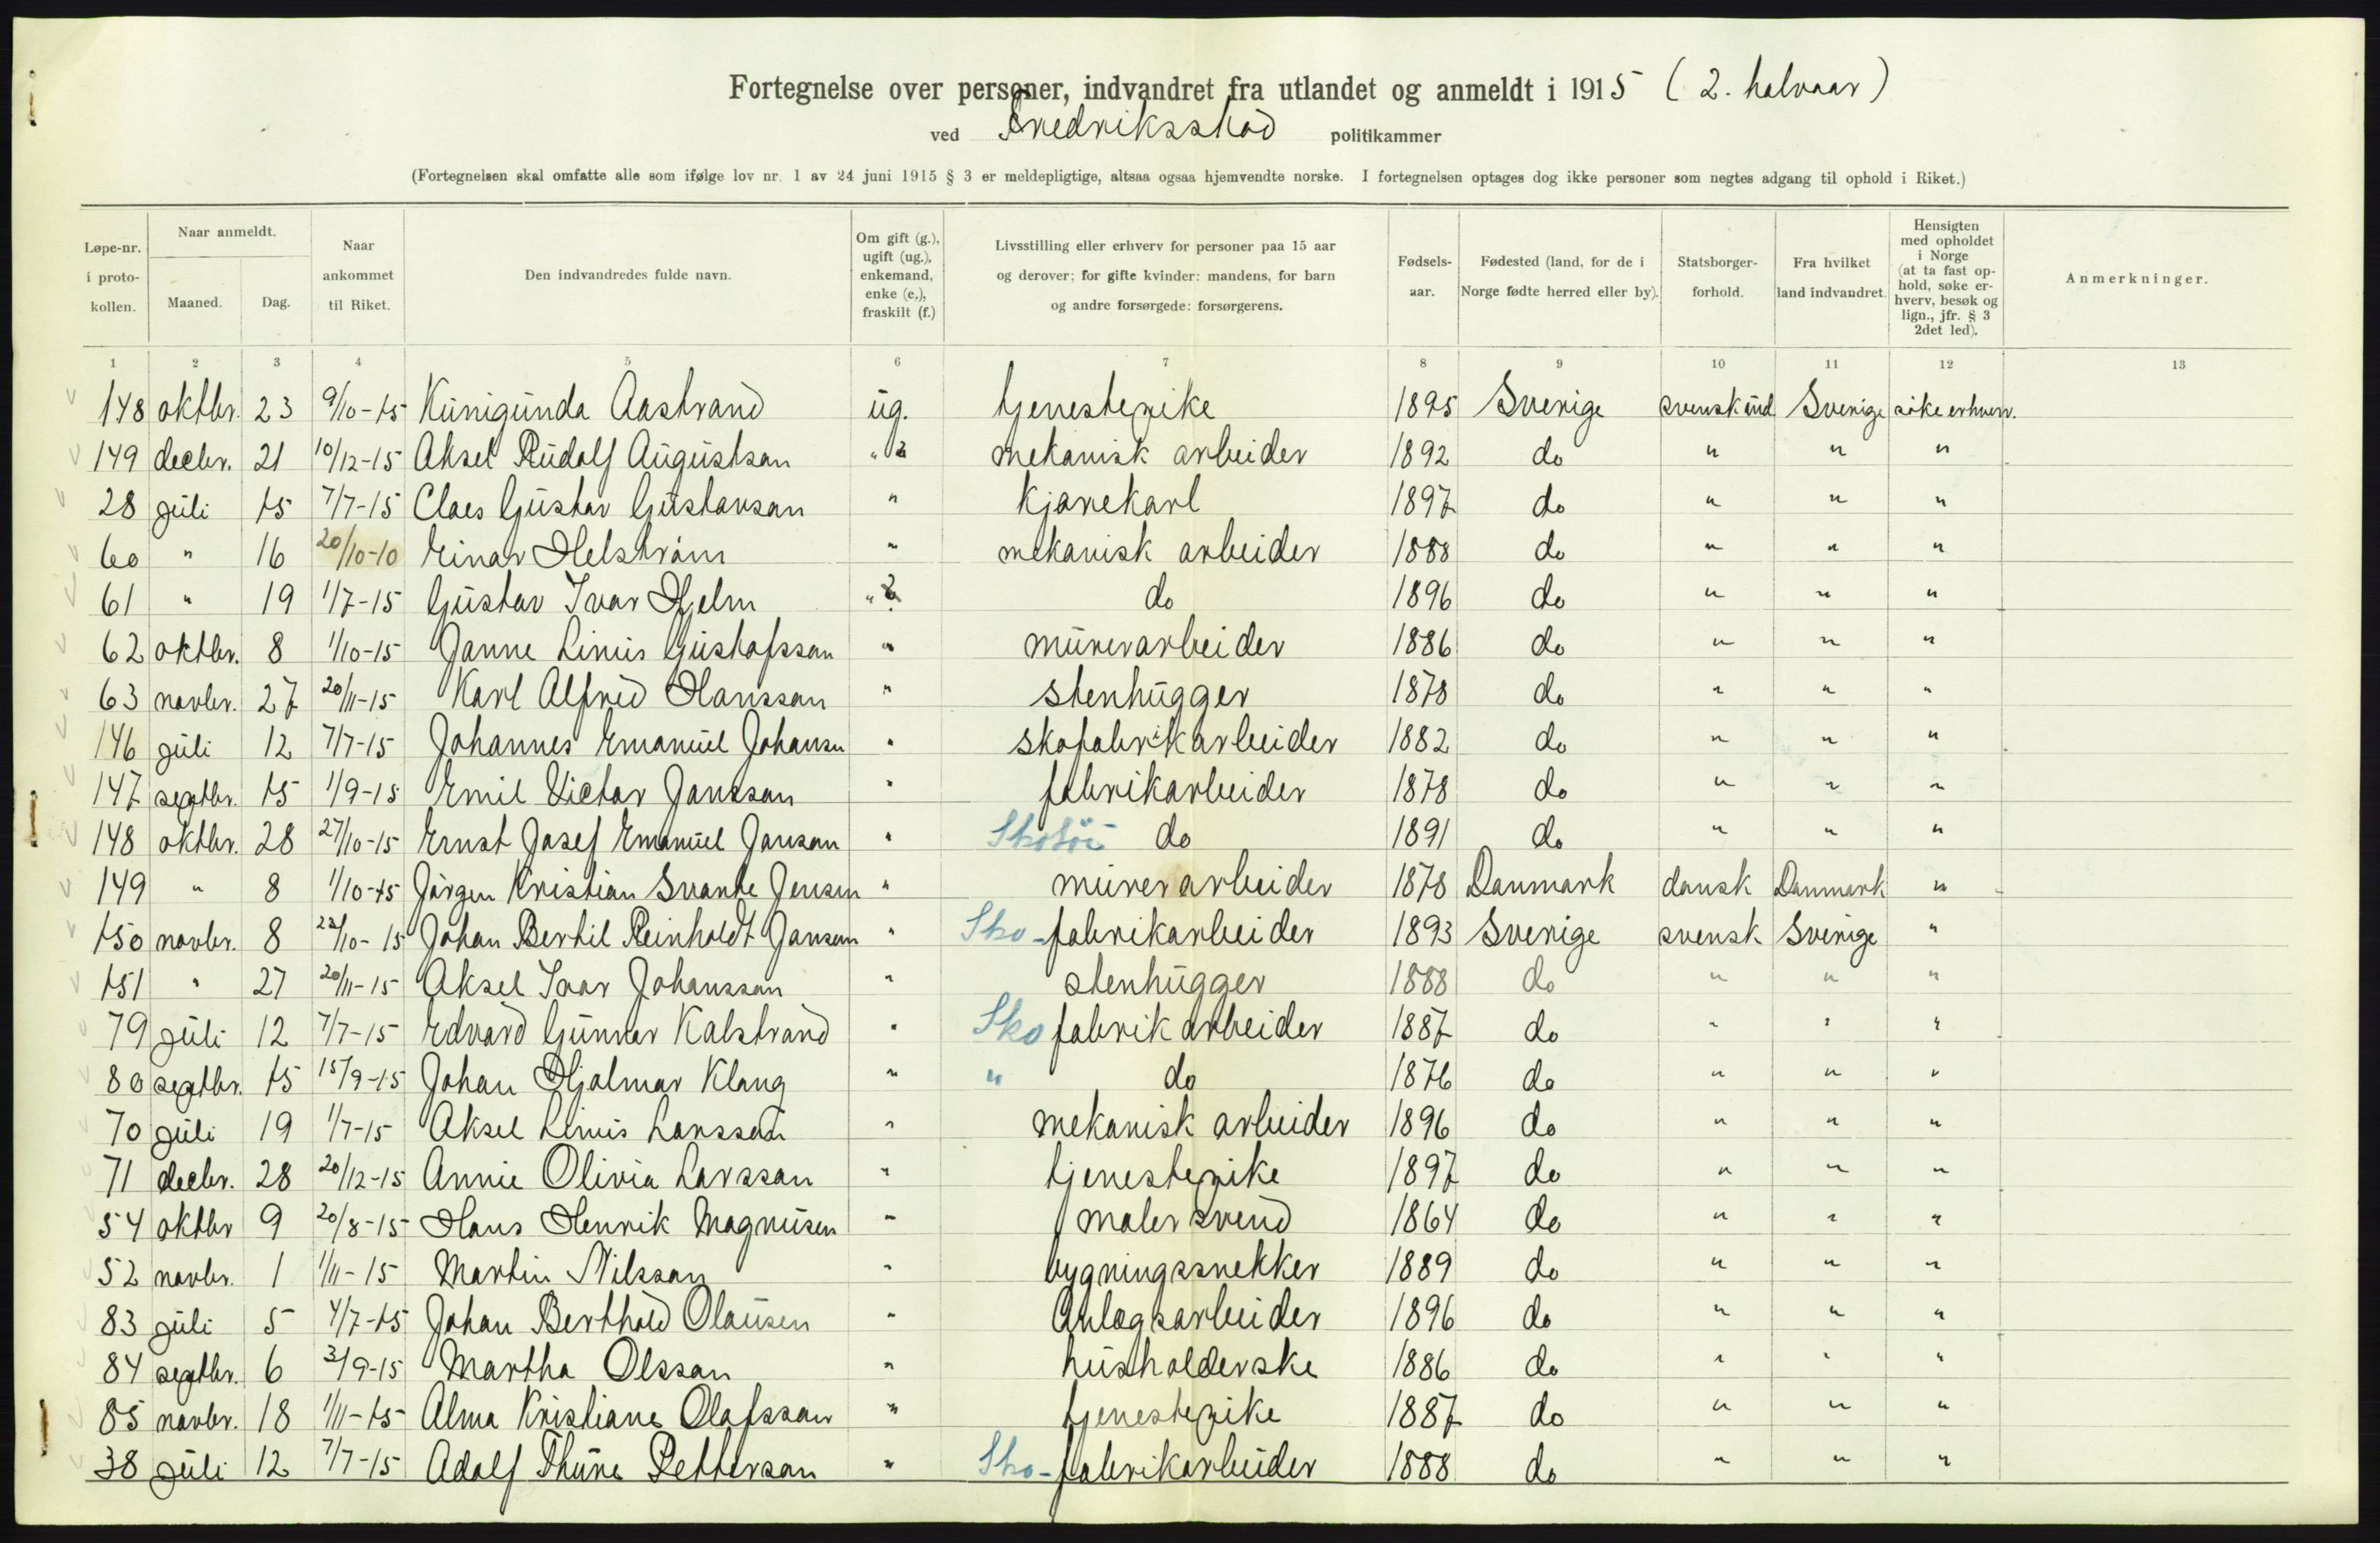 Fortegnelse over personer, indvandret fra utlandet og anmeldt i 1915 (2. halvaar)
ved Fredriksstad politikammer
(Fortegnelsen skal omfatte alle som ifølge lov nr. 1 av 24 juni 1915 § 3 er meldepligtige, altsaa ogsaa hjemvendte norske. I fortegnelsen optages dog ikke personer som negtes adgang til ophold i Riket.)
Løpe-nr. i proto-kollen. Naar anmeldt. Maaned. Dag. Naar ankommet til Riket. Den indvandredes fulde navn. Om gift (g.), ugift (ug.), enkemand, enke (e.), fraskilt (f.) Livsstilling eller erhverv for personer paa 15 aar og derover; for gifte kvinder: mandens, for barn og andre forsørgede: forsørgerens. Fødsels-aar. Fødested (land, for de i Norge fødte herred eller by). Statsborger-forhold. Fra hvilket land indvandret. Hensigten med opholdet i Norge (at ta fast op-hold, søke er-hverv, besøk og lign., jfr. § 3 2det led). Anmerkninger.
1 2 3 4 5 6 7 8 9 10 11 12 13
148 oktbr. 23 9/10-15 Kunigunda Aastrand ug. tjenestepike 1895 Sverige svensk und. Sverige søke erhverv.
149 decbr. 21 10/12-15 Aksel Rudolf Augustson " mekanisk arbeider 1892 do " " "
28 juli 15 7/7-15 Claes Gustav Gustavson " kjørekarl 1897 do " " "
60 " 16 20/10-10 Einar Helström " mekanisk arbeider 1888 do " " "
61 " 19 1/7-15 Gustav Ivar Hjelm " do 1896 do " " "
62 oktbr. 8 1/10-15 Janne Linus Gustafsson " murerarbeider 1886 do " " "
63 novbr. 27 20/11-15 Karl Alfred Hansson " stenhugger 1878 do " " "
146 juli 12 7/7-15 Johannes Emanuel Johansn " skofabrikarbeider 1882 do " " "
147 septbr. 15 1/9-15 Emil Victor Jonsson " fabrikarbeider 1878 do " " "
148 oktbr. 28 27/10-15 Ernst Josef Emanuel Jonson " do 1891 do " " "
149 " 8 1/10-15 Jørgen Kristian Svante Jensen " murerarbeider 1878 Danmark dansk Danmark "
150 novbr. 8 22/10-15 Johan Bertil Reinholdt Jonson " Sko-fabrikarbeider 1893 Sverige svensk Sverige "
151 " 27 20/11-15 Aksel Ivar Johansson " stenhugger 1888 do " " "
79 juli 12 7/7-15 Edvard Gunnar Kalstrand " Sko fabrikarbeider 1887 do " " "
80 septbr. 15 15/9-15 Johan Hjalmar Klang " " do 1876 do " " "
70 juli 19 1/7-15 Aksel Linus Larsson " mekanisk arbeider 1896 do " " "
71 decbr. 28 20/12-15 Annie Olivia Larsson " tjenestepike 1897 do " " "
54 oktbr 9 20/8-15 Hans Henrik Magnusen " malersvend 1864 do " " "
52 novbr. 1 1/11-15 Martin Nilsson " bygningssnekker 1889 do " " "
83 juli 5 4/7-15 Johan Berthold Olausen " Anlægsarbeider 1896 do " " "
84 septbr. 6 3/9-15 Martha Olsson " husholderske 1886 do " " "
85 novbr. 18 1/11-15 Alma Kristiane Olafsson " tjenestepike 1887 do " " "
38 juli 12 7/7-15 Adolf Thure Petterson " Sko-fabrikarbeider 1888 do " " "